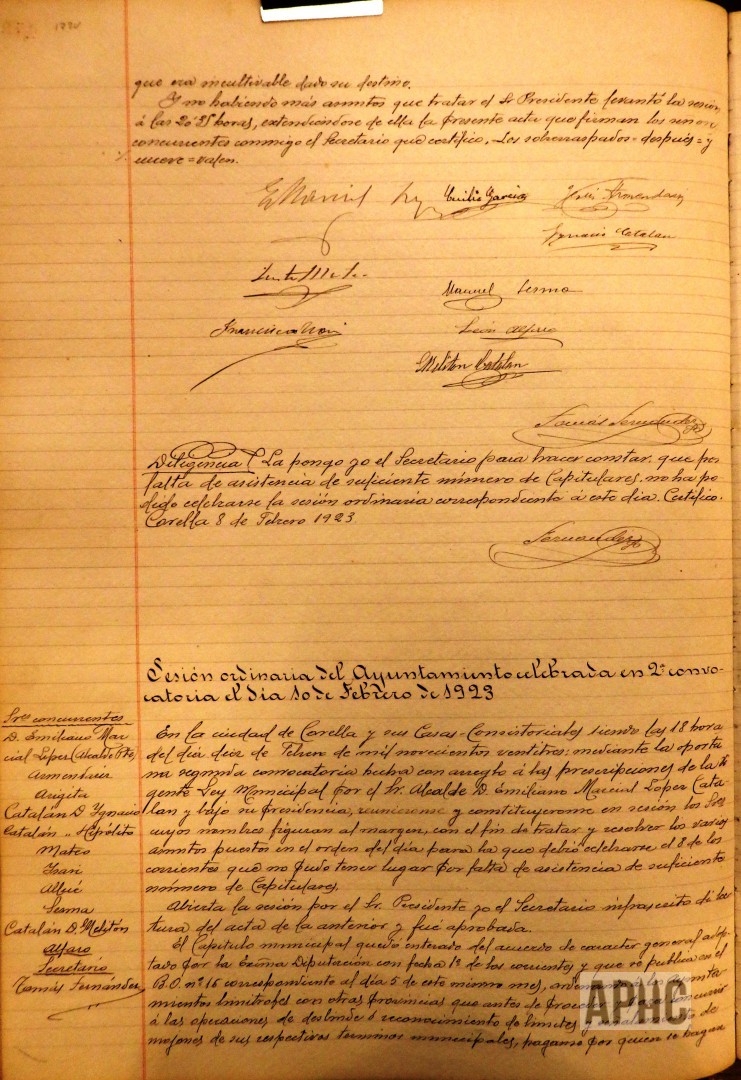 que era incultivable dado su destino.
Y no habiendo más asuntos que tratar el Sr Presidente levantó la sesión
á las 20'25 horas, extendiéndose de ella la presente acta que firman los señores
concurrentes conmigo el Secretario que certifico.-Los sobrerraspados=después=y
nueve=valen.
Emilio García
Ignacio Catalan
Manuel Sesma
León Alfaro
Meliton Catalan
Tomás Fernández
Diligencia La pongo yo el Secretario para hacer constar, que por
falta de asistencia de suficiente número de Capitulares, no ha po
dido celebrarse la sesión ordinaria correspondiente á este día. Certifico.
Corella 8 de Febrero 1923
Fernández
Sesión ordinaria del Ayuntamiento celebrada en 2ª convo-
catoria el día 10 de Febrero de 1923
Sres concurrentes
D. Emiliano Mar
cial López (Alcalde Pte)
Armendariz
Argita
Catalán D. Ygnacio
Catalán " Hipólito
Mateo
Ysari
Allué
Sesma
Catalán D. Melitón
Alfaro
Secretario
Tomás Fernández
En la ciudad de Corella y sus Casas-Consistoriales siendo las 18 hora
del día diez de Febrero de mil novecientos veintitres; mediante la oportu
na segunda convocatoria hecha con arreglo á las prescripciones de la vi
gente Ley Municipal por el Sr. Alcalde D. Emiliano Marcial López Cata
lan y bajo su presidencia, reunieronse y constituyeronse en sesión los Sres
cuyos nombres figuran al margen, con el fin de tratar y resolver los varios
asuntos puestos en el orden del día para la que debió celebrarse el 8 de los
corrientes que no pudo tener lugar por falta de asistencia de suficiente
número de Capitulares.
Abierta la sesión por el Sr. Presidente yo el Secretario infrascrito di lec
tura del acta de la anterior y fué aprobada.
El Capítulo municipal quedó enterado del acuerdo de caracter general adop
tado por la Exma Diputación con fecha 1º de los corrientes y que se publica en el
B.O. nº 16 correspondiente al día 5 de este mismo mes, á los Ayunta
mientos limítrofes con otras provincias que antes de
á las operaciones de deslinde ó reconocimiento de límites de
mojones de sus respectivos términos municipales, pagano por quien se hagan
APHC